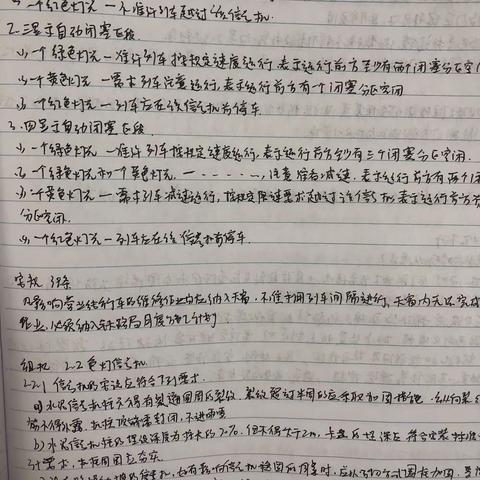 一个红色灯光 一 不准列车越过该信号机.
2. 三显示自动闭塞区段
(1) 一个绿色灯光 一 准许列车按规定速度运行, 表示运行前方至少有两个闭塞分区空
(2) 一个黄色灯光 一 要求列车注意运行, 表示运行前方有一个闭塞分区空闲
(3) 一个红色灯光 一 列车应在该信号机前停车
3. 四显示自动闭塞区段
(1) 一个绿色灯光 一 准许列车按规定速度运行, 表示运行前方至少有三个闭塞分区空闲.
(2) 一个绿色灯光和一个黄色灯光, 一 ······, 注意准备减速. 表示运行前方有两个闭
(3) 一个黄色灯光 一 要求列车减速运行, 按规定限速要求越过该信号机 表示运行前方有
分区空闲.
(4) 一个红色灯光 一 列车应在该信号机前停车.
凡影响营业线行车的维修作业均应纳入天窗. 不准利用列车间隔进行, 天窗内无法完成
作业, 必须纳入铁路局月度施工计划
2.2 色灯信号机
2.2.1 信号机的安设应符合下列要求.
a) 水泥信号机柱不得有裂通圆周的裂纹, 裂纹超过半周的应采取加固措施. 纵向裂
筋不得外露, 机柱顶端需封闭, 不进雨雪
b) 水泥信号机柱的埋设深度为柱长的 20%, 但不得大于2m, 卡盘及埋深应符合安装标准